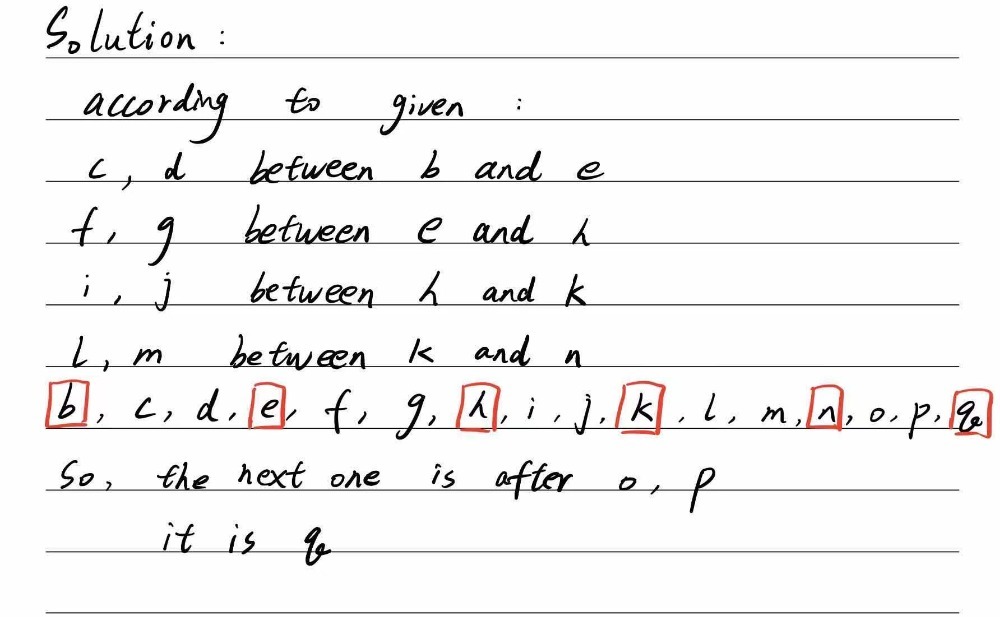 Solution :
according to given :
c, d between b and e
f, g between e and h
i, j between h and k
l, m between k and n
b, c, d, e, f, g, h, i, j, k, l, m, n, o, p, q
So, the next one is after o, p
it is q